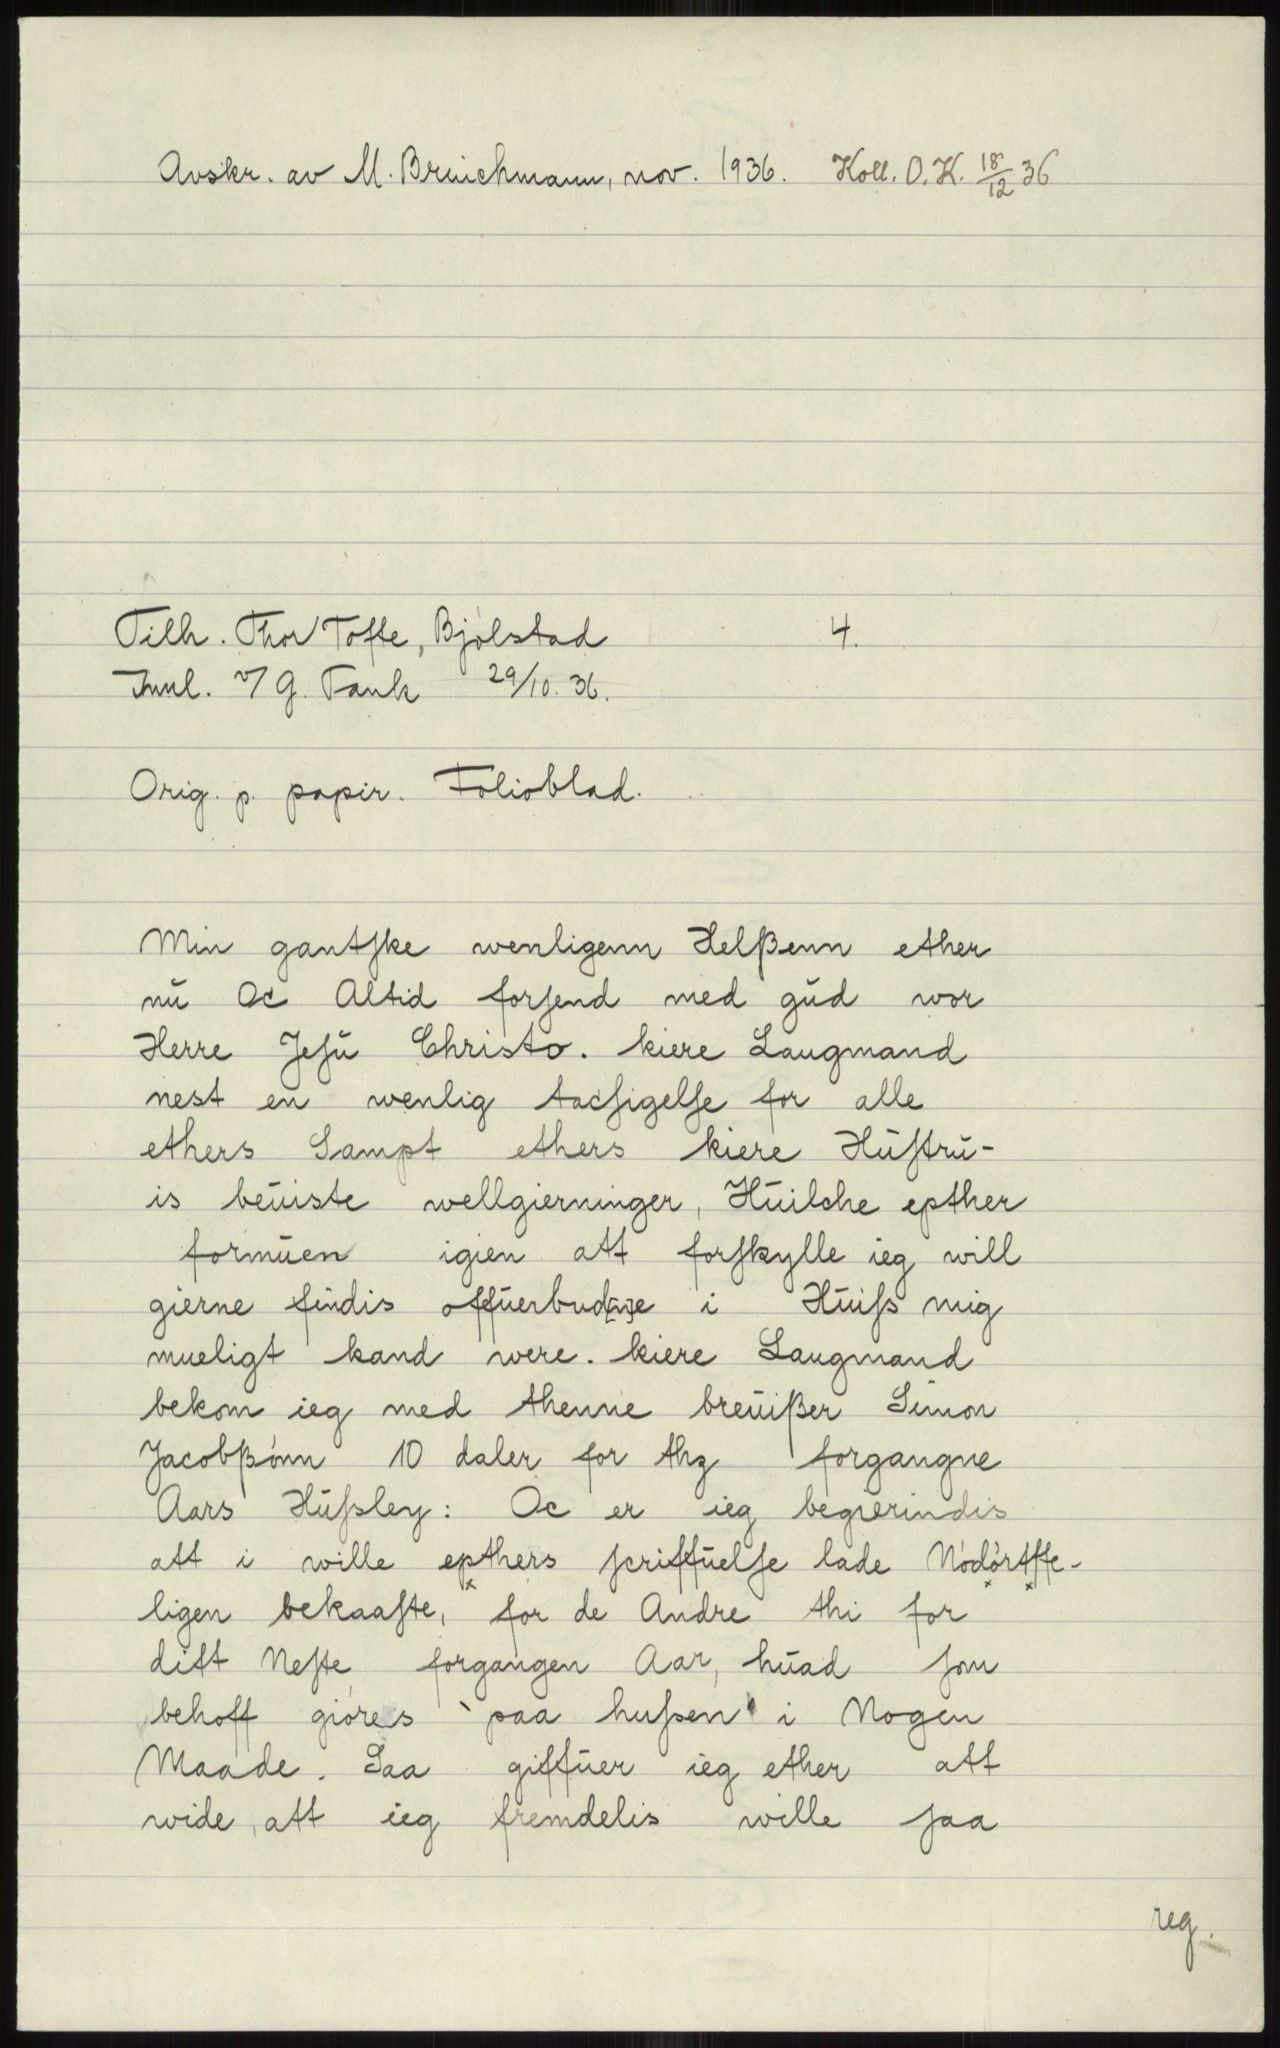 Avskr. av M. Bruichmann, nov. 1936. Koll. O.K. 18/12 36
Tilh. Thor Tofte, Bjølstad 4.
Innl. v/ G. Fauk 29/10. 36.
Orig. p. papir. Folioblad.
Min gantſke wenligenn Helßenn ether
nu Oc Altid forſend med gud wor
Herre Jeſu Christo. kiere Laugmand
nest en wenlig tacſigelſe for alle
ethers Sampt ethers kiere Huſtru-
is beuiste wellgierninger, Huilche epther
formuen igien att forſkylle ieg will
gierne findis offuerbud[n]e i Huiſs mig
mueligt kand were. kiere Laugmand
bekom ieg med thenne breuißer Simon
Jacobßønn 10 daler for thz forgangne
Aars Huſsley: Oc er ieg begierindis
att i wille epthers ſcriffuelſe lade Nødørtffe-
ligen bekaaſte, for de Andre thi for
ditt Neſte forgangen Aar, huad ſom
behoff giøres paa huſsen i Nogen
Maade. Saa giffuer ieg ether att
wide, att ieg fremdelis wille ſaa
reg.